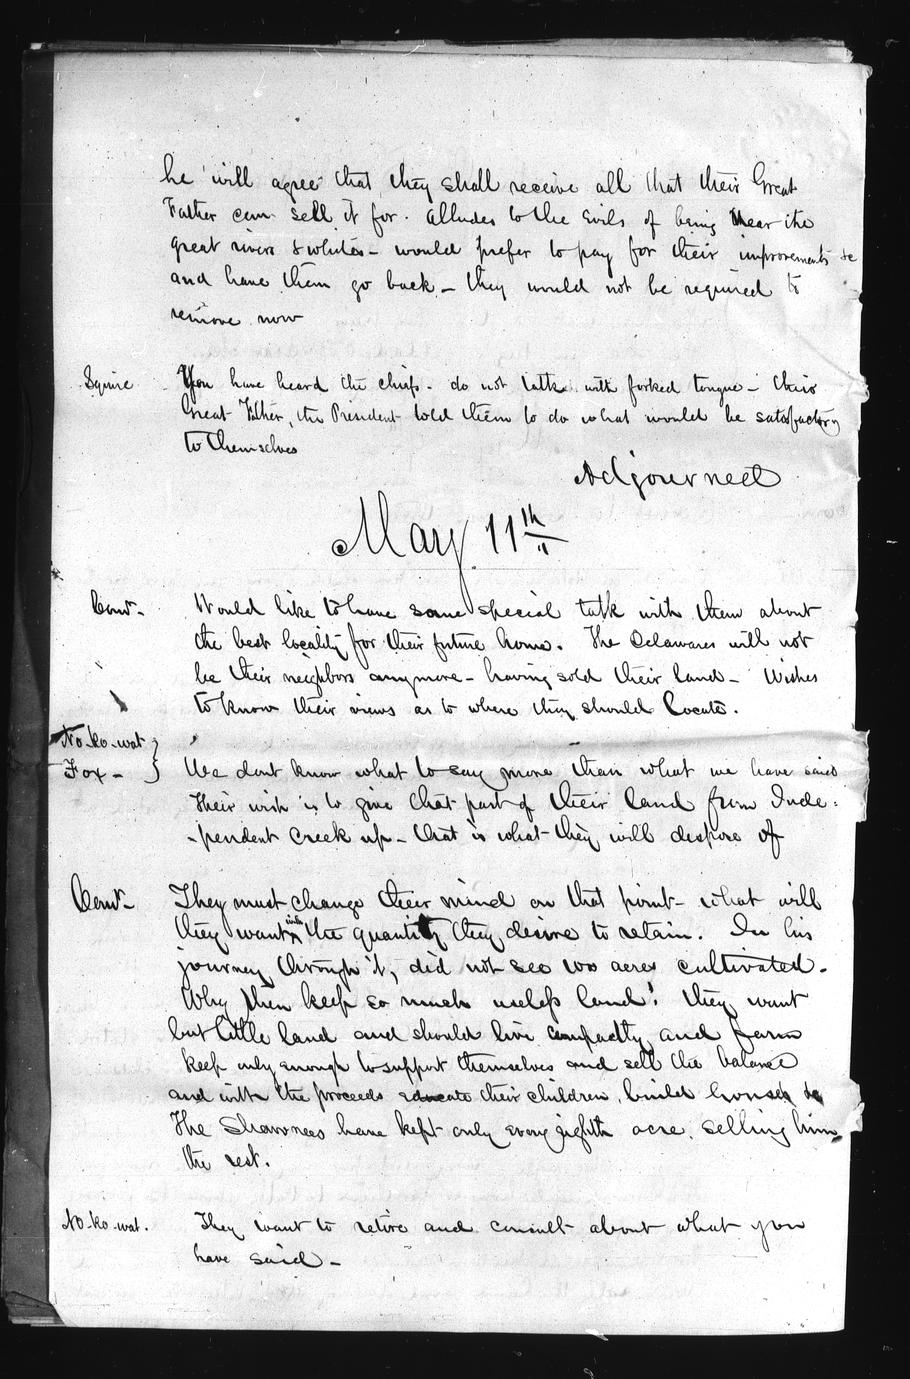 he will agree that they shall receive all that their Great
Father can sell it for. Alludes to the evils of being near the
great rivers & whites – would prefer to pay for their improvements &c
and have them go back – they would not be required to
remove now
Squire You have heard the chiefs – do not talk with forked tongue – their
Great Father, the President told them to do what would be satisfactory
to themselves
Adjourned
May 11th
Comr – Would like to have some special talk with them about
the best locality for their future home. The Delawares will not
be their neighbors anymore – having sold their land – Wishes
to know their views as to where they should locate.
No-ko-wat }
Fox – } We dont know what to say more than what we have said
Their wish is to give that part of their land from Inde=
-pendent Creek up – that is what they will dispose of
Comr – They must change their mind on that point – what will
they want with the quantity they desire to retain. In his
journey through it, did not see 100 acres cultivated.
Why then keep so much useless land! They want
but little land and should live compactly and farm
keep only enough to support themselves and sell the balance
and with the proceeds educate their children, build houses &c
The Shawnees have kept only every eighth acre, selling him
the rest.
No-ko-wat. They want to retire and consult about what you
have said –